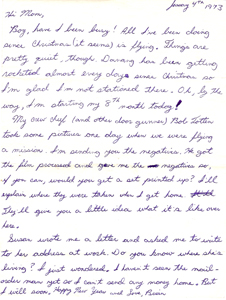 January 4th 1973
Hi Mom,
Boy, have I been busy! All I've been doing
since Christmas (it seems) is flying. Things are
pretty quiet, though Danang has been getting
rocketed almost every day since Christmas so
I'm glad I'm not stationed there. Oh, by the
way, I'm starting my 8th month today!
My crew chief (and other door gunner) Bob Totten
took some pictures one day when we were flying
a mission. I'm sending you the negatives. He got
the film processed and gave me the negatives so,
if you can, would you get a set printed up? I'll
explain where they were taken when I get home
They'll give you a little idea what it's like over
here.
Susan wrote me a letter and asked me to write
to her address at work. Do you know where she's
living? I just wondered. I haven't seen the mail-
order man yet so I can't send any money home. But
I will soon. Happy New Year and Love, Brian